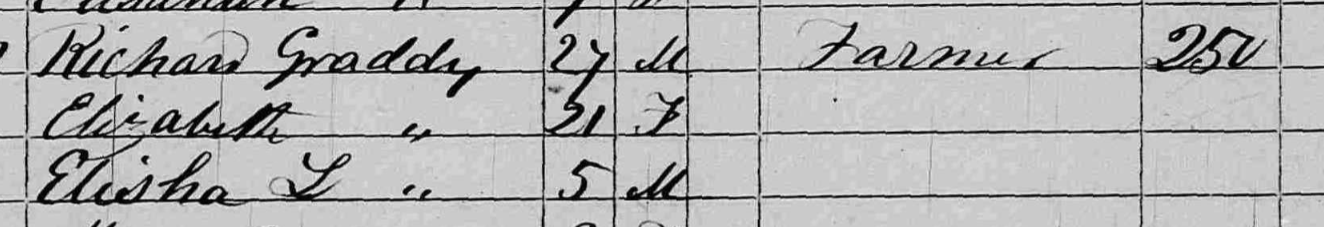 Richard Graddy 27 M Farmer 250
Elizabeth " 21 F
Elisha L " 5 M